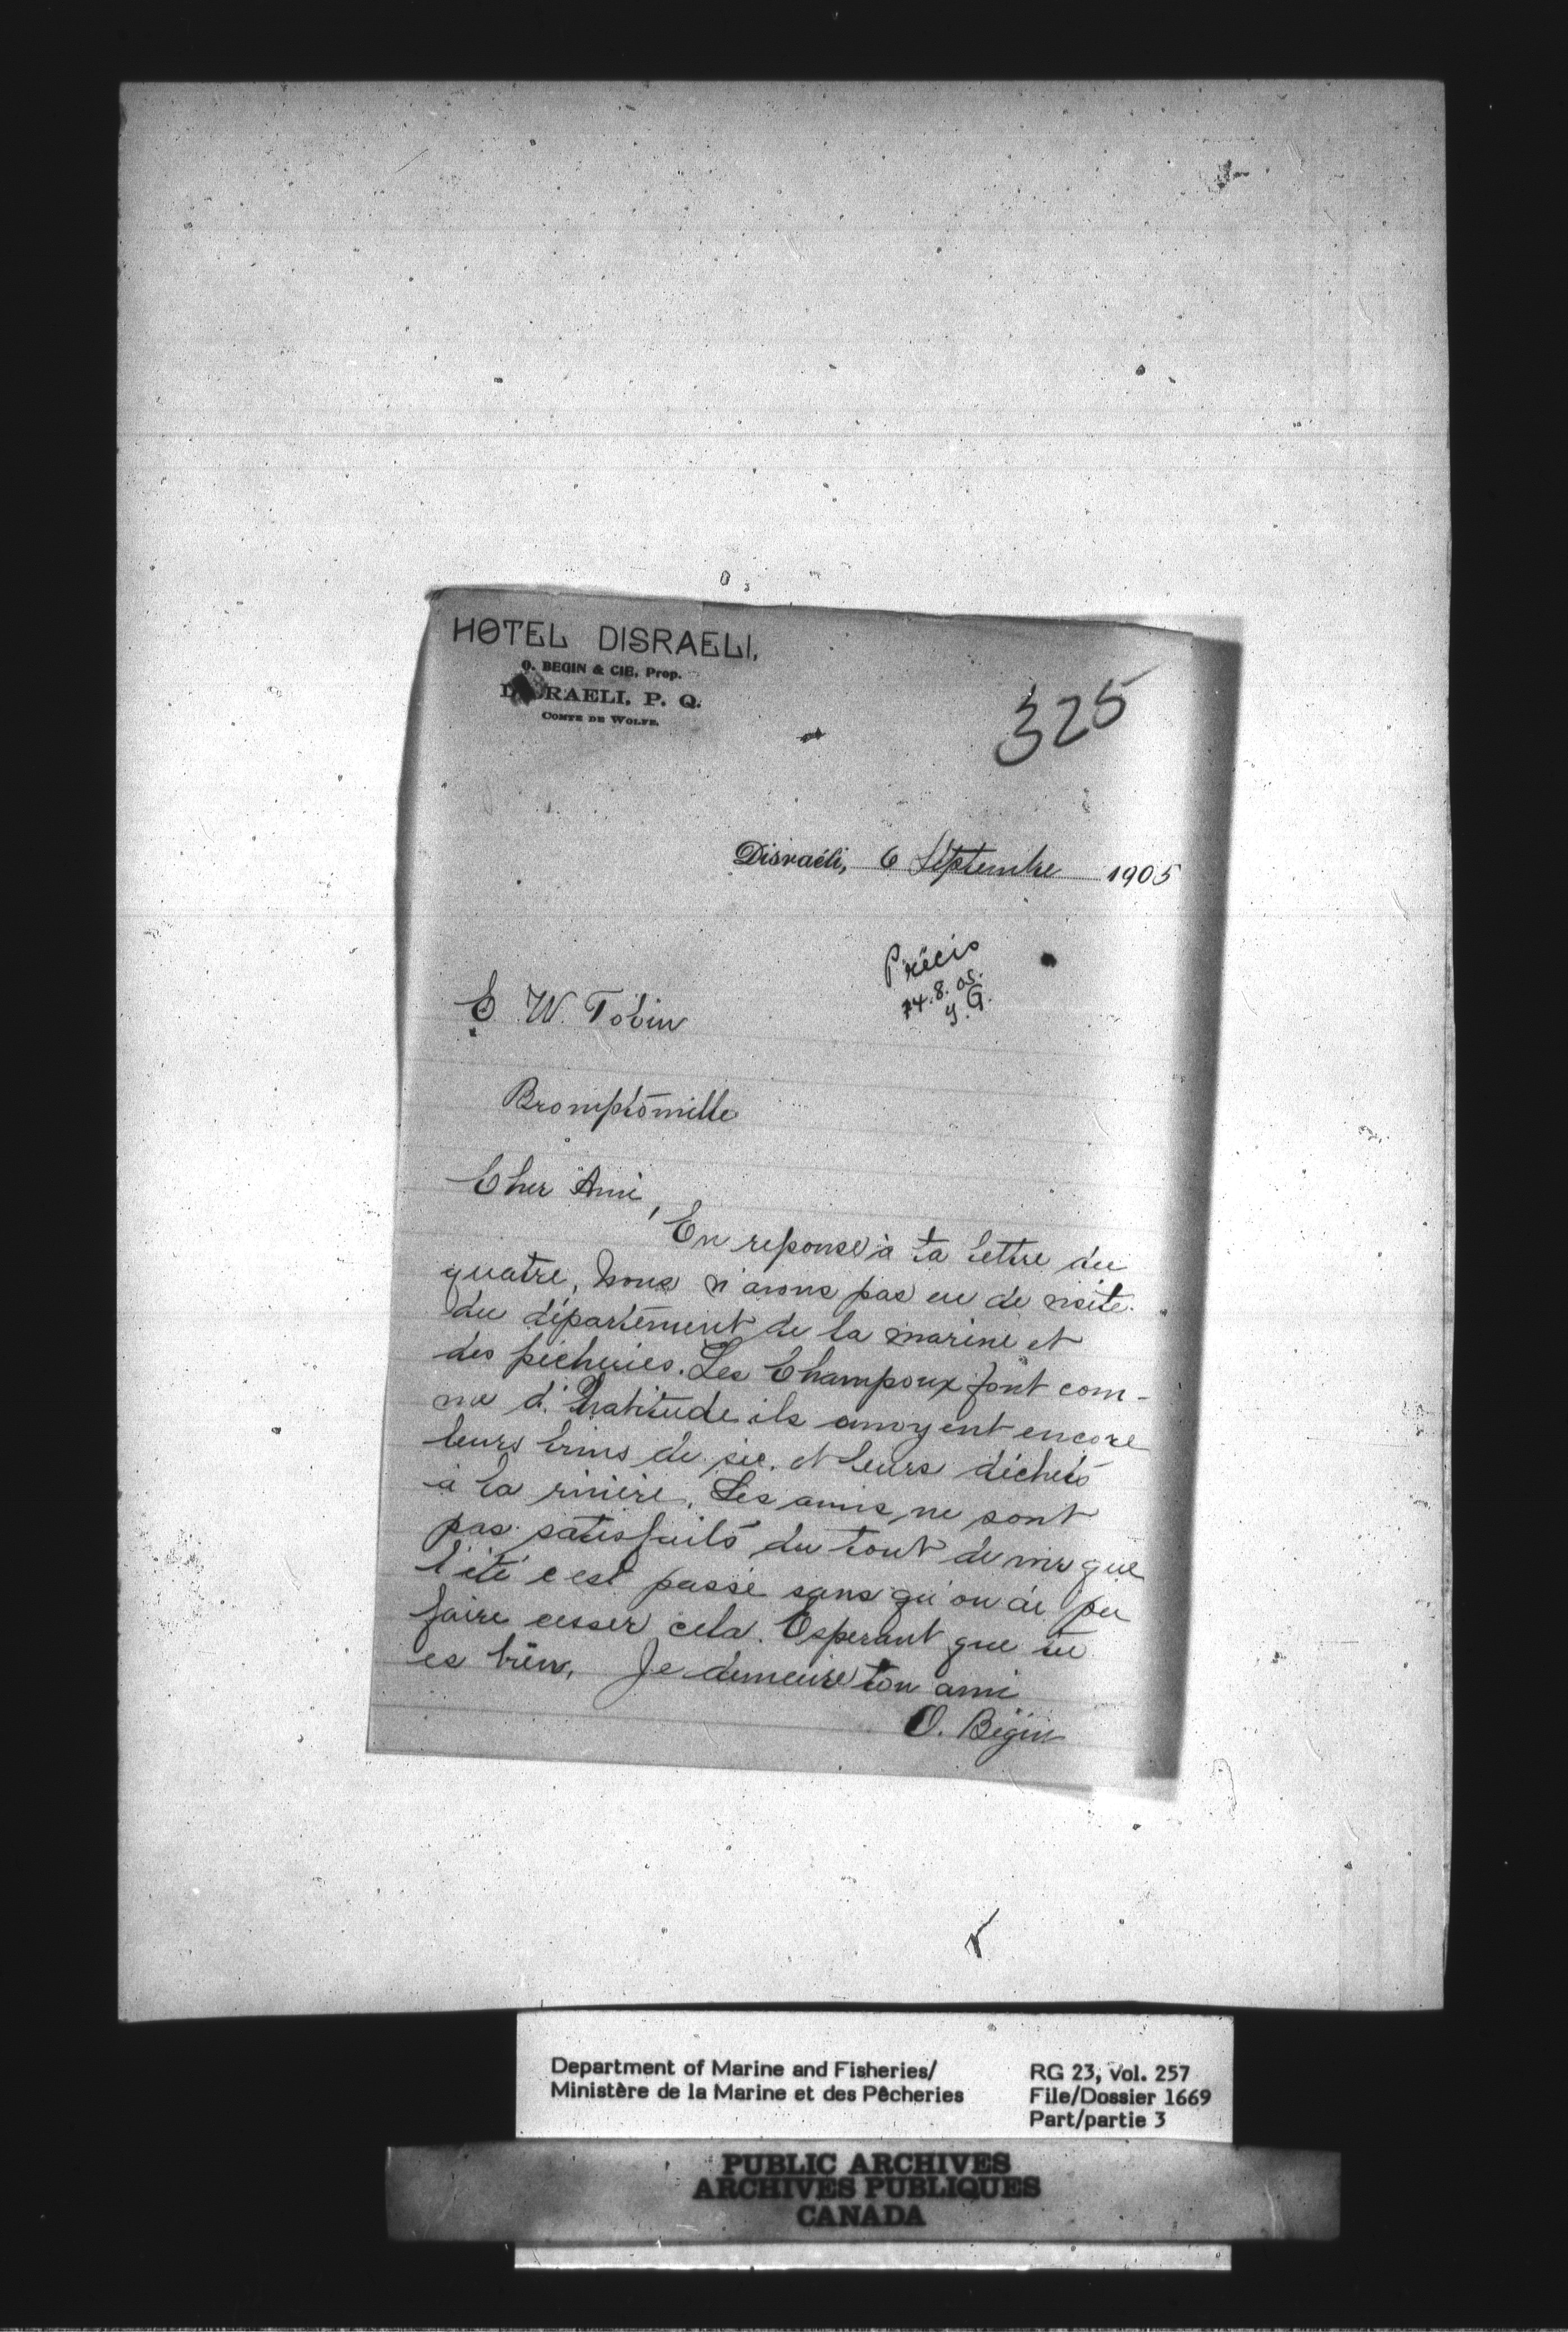 HOTEL DISRAELI,
O. BEGIN & CIE, Prop.
DISRAELI, P. Q.
COMTE DE WOLFE.
325
Disraéli, 6 Septembre 1905
Précis
8.05.
G.
E W. Tobin
Bromptonville
Cher Ami,
En reponse à ta lettre du
quatre, nous n'avons pas eu de visite
du département de la marine et
des pêcheries. Les Champoux font com-
me d'habitude ils envoyent encore
leurs brins de scie et leurs déchets
à la rivière. Les amis ne sont
pas satisfaits du tout de voir que
l'été c'est passé sans qu'on ai pu
faire cesser cela. Esperant que tu
es bien, Je demeure ton ami
O. Bégin
Department of Marine and Fisheries/
Ministère de la Marine et des Pêcheries
RG 23, vol. 257
File/Dossier 1669
Part/partie 3
PUBLIC ARCHIVES
ARCHIVES PUBLIQUES
CANADA